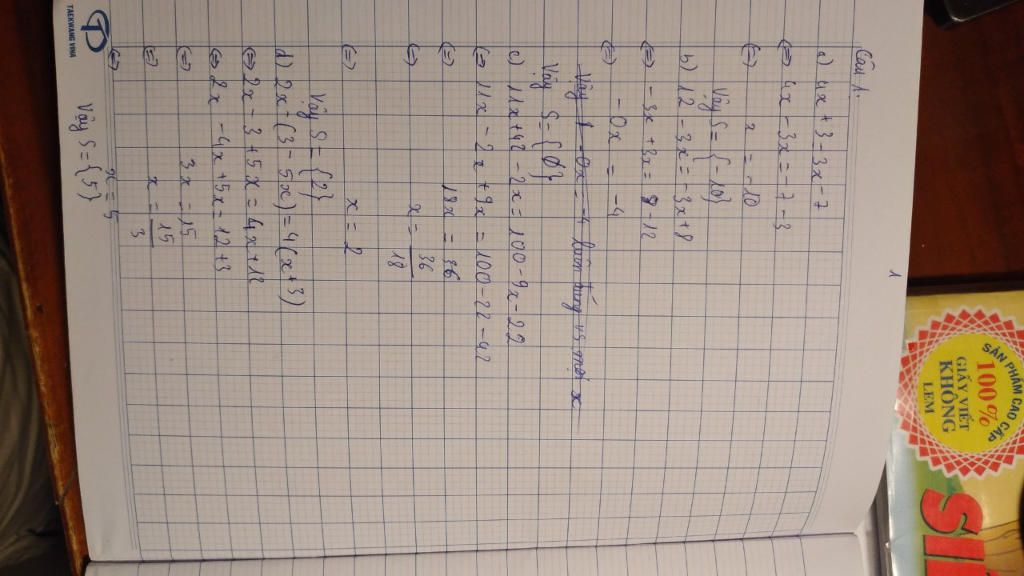 1
Câu 1.
a) 4x + 3 - 3x - 7
(=) 4x - 3x = -7 - 3
(=) x = -10
Vậy S = {-10}
b) 12 - 3x = -3x + 8
(=) -3x + 3x = 8 - 12
(=) -0x = -4
Vậy S = {∅}
c) 11x + 42 - 2x = 100 - 9x - 22
(=) 11x - 2x + 9x = 100 - 22 - 42
(=) 18x = 36
(=) x = 36/18
(=) x = 2
Vậy S = {2}
d) 2x - (3 - 5x) = 4(x + 3)
(=) 2x - 3 + 5x = 4x + 12
(=) 2x - 4x + 5x = 12 + 3
(=) 3x = 15
(=) x = 15/3
(=) x = 5
Vậy S = {5}
TAEKWANG VINA
SẢN PHẨM CAO CẤP
100%
GIẤY VIẾT
KHÔNG
LEM